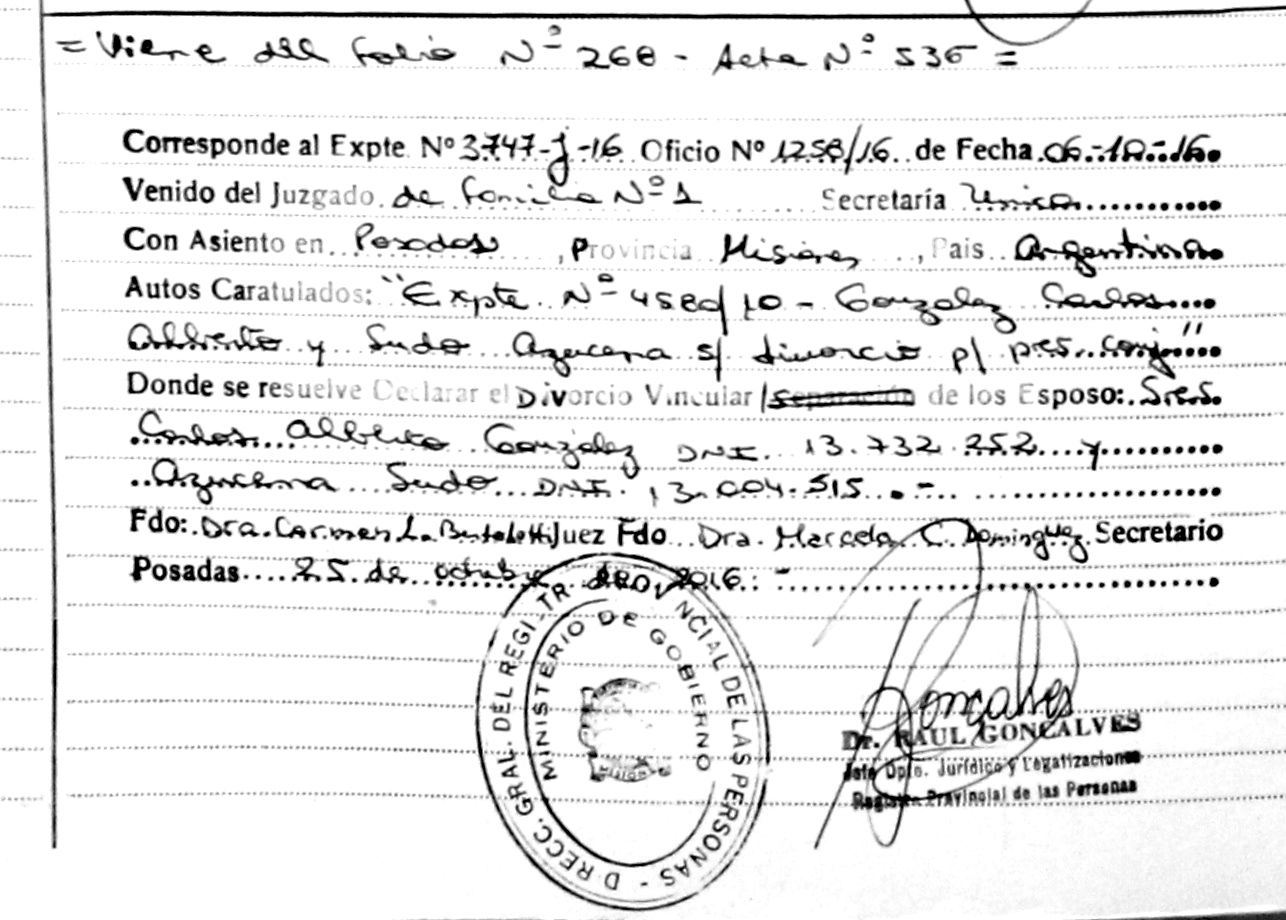 = Viene del folio Nº 268 - Acta Nº 536 =
Corresponde al Expte Nº 3747-J-16 Oficio Nº 1258/16 de Fecha 06-10-16
Venido del Juzgado de Familia Nº 1 Secretaría Unica
Con Asiento en Posadas, Provincia Misiones, Pais Argentina
Autos Caratulados: "Expte Nº 4580/10 - Gonzalez Carlos
Alberto y Sudo Azucena s/ divorcio p/ pres. conj"
Donde se resuelve Declarar el Divorcio Vincular / separación de los Esposo: Sres.
Carlos Alberto Gonzalez DNI. 13.732.252 y
Azucena Sudo DNI. 13.004.515.-
Fdo: Dra. Carmen L. Bertolotti Juez Fdo Dra. Marcela C. Dominguez Secretario
Posadas 25 de octubre de 2016.-
DIRECC. GRAL. DEL REGISTRO PROVINCIAL DE LAS PERSONAS -
MINISTERIO DE GOBIERNO
Goncalves
Dr. RAUL GONCALVES
Jefe Dpto. Jurídico y Legalizaciones
Registro Provincial de las Personas